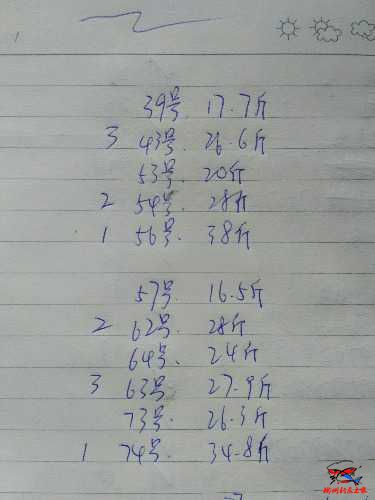 39号 17.7斤
3 43号 26.6斤
53号 20斤
2 54号 28斤
1 56号. 38斤
57号 16.5斤
2 62号 28斤
64号. 24斤
3 63号 27.9斤
73号. 26.3斤
1 74号. 34.8斤